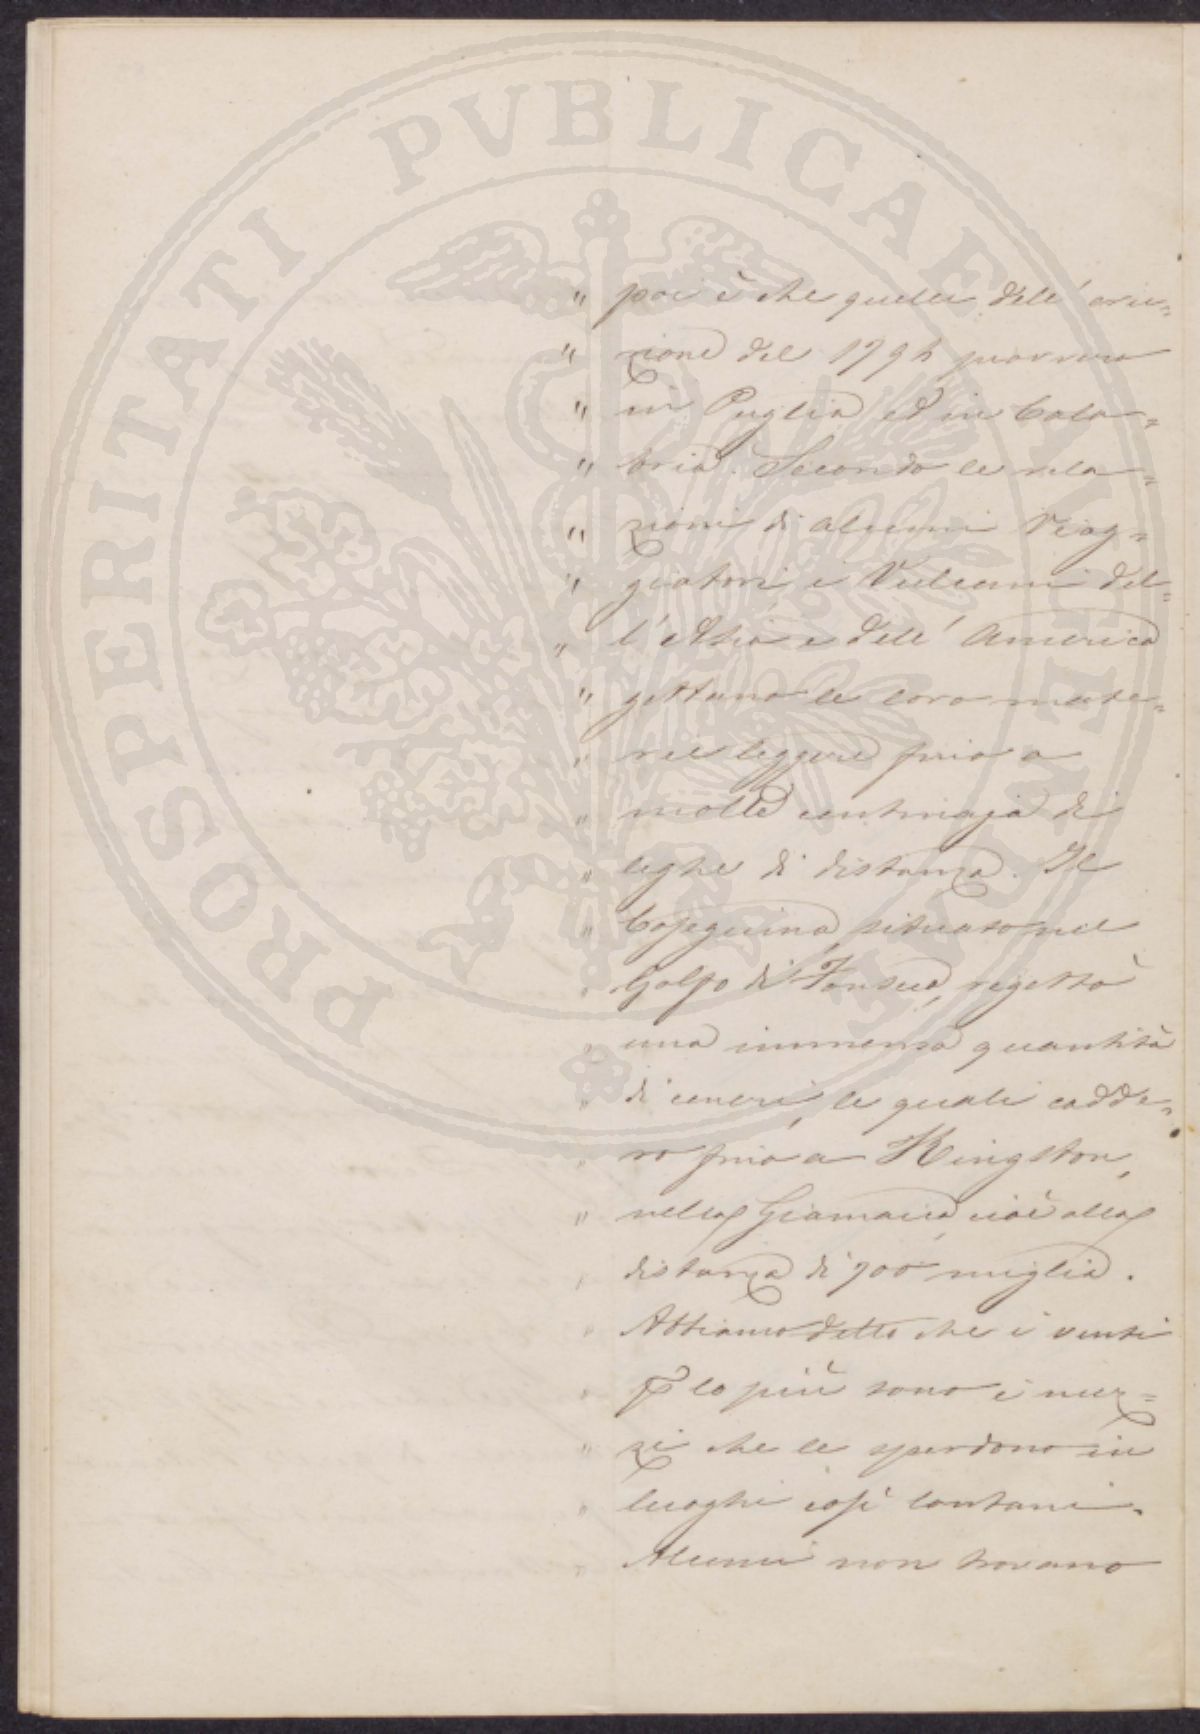 PROSPERITATI PVBLICAE
" poi è che quelle dell' eru=
" zione del 1794 piovvero
" in Puglia ed in Cala=
" bria. Secondo le rela=
" zioni di alcuni Viag=
" giatori i Vulcani del=
" l'Asia e dell' America
" gettano le loro mate=
" rie leggere fino a
" molte centinaja di
" leghe di distanza. Il
" Coseguina, situato nel
" Golfo di Fonseca, rigettò
" una immensa quantità
" di ceneri, le quali cadde=
" ro fino a Kingston,
" nella Giamaica, cioè alla
" distanza di 700 miglia.
" Abbiamo detto che i venti
" p lo più sono i mez=
" zi che le sperdono in
" luoghi così lontani.
" Alcuni non trovano